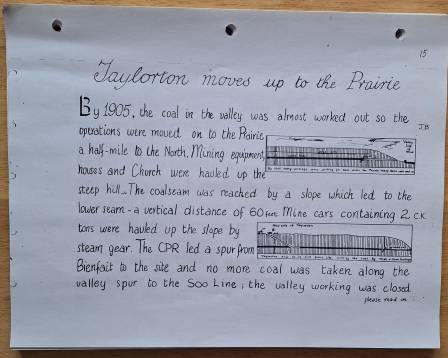 15
Taylorton moves up to the Prairie
By 1905, the coal in the valley was almost worked out so the
J.B.
operations were moved on to the Prairie
a half-mile to the North. Mining equipment,
houses and Church were hauled up the
steep hill. The coalseam was reached by a slope which led to the
lower seam - a vertical distance of 60 feet. Mine cars containing 2
C.K.
tons were hauled up the slope by
steam gear. The CPR led a spur from
Bienfait to the site and no more coal was taken along the
valley spur to the Soo Line; the valley working was closed
please read on